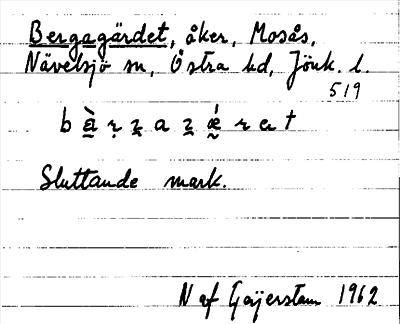 Bergagärdet, åker, Mosås,
Nävelsjö sn, Östra hd, Jönk. l.
519
Sluttande mark.
N af Geijerstam 1962